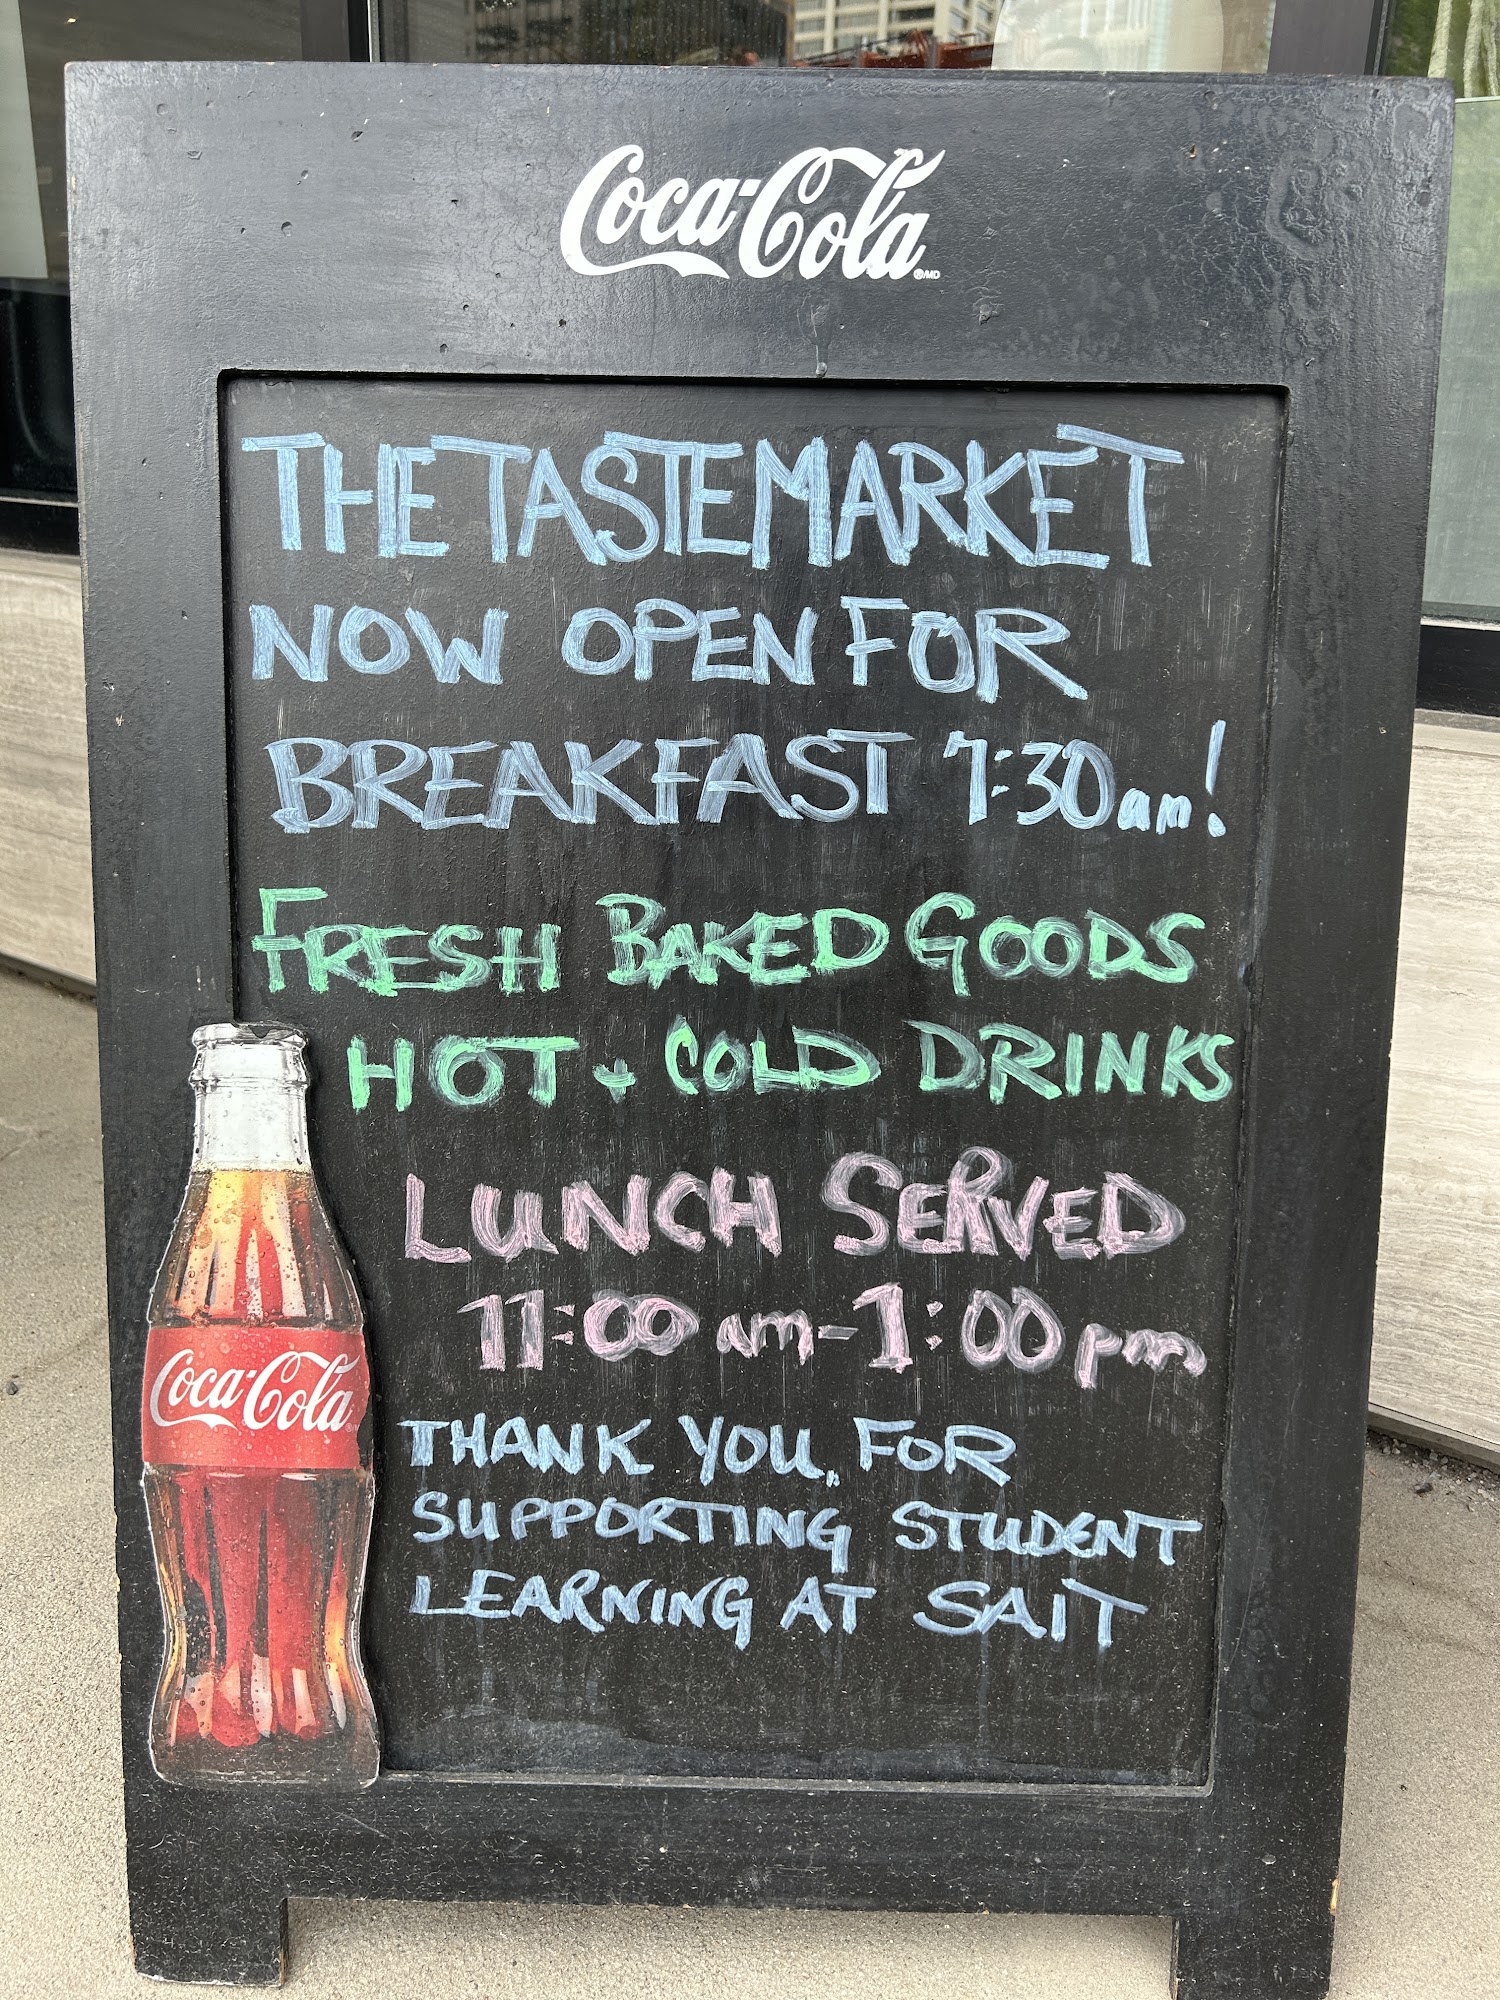 Coca-Cola ®/MD
THE TASTEMARKET
NOW OPEN FOR
BREAKFAST 7:30am!
FRESH BAKED GOODS
HOT + COLD DRINKS
LUNCH SERVED
11:00am-1:00pm
THANK YOU, FOR
SUPPORTING STUDENT
LEARNING AT SAIT
Coca-Cola